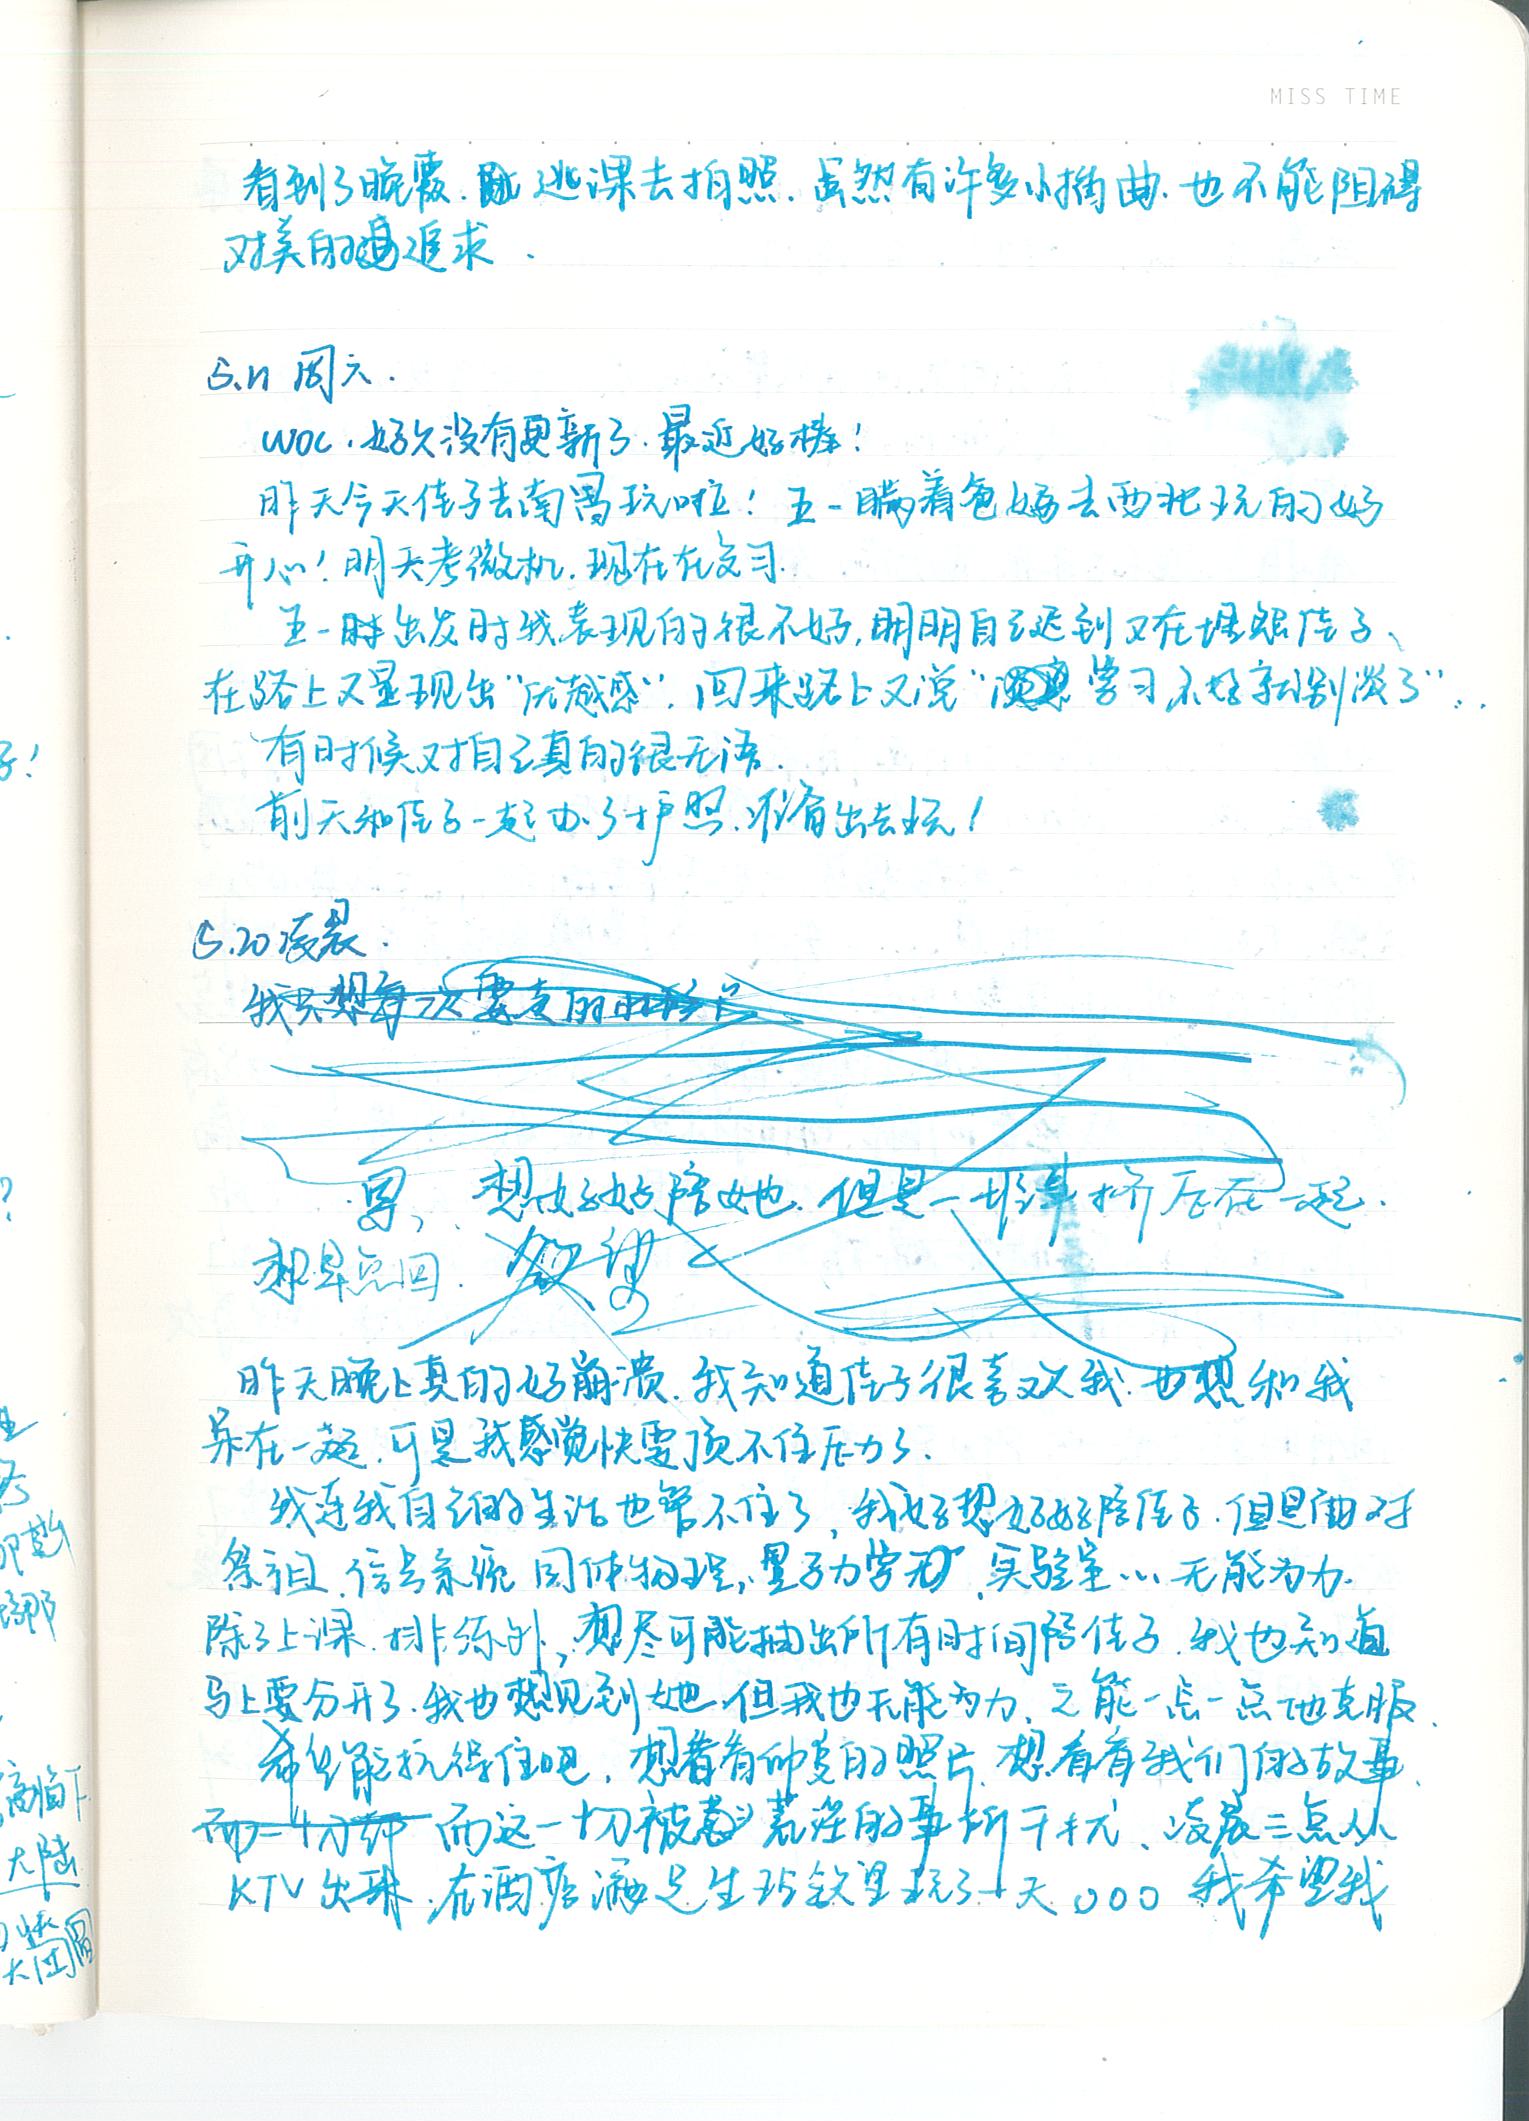 MISS TIME
看到了晚霞.逃课去拍照.虽然有许多小插曲.也不能阻碍
对美的追求.
5.11 周六.
woc.好久没有更新了.最近好棒!
昨天今天佳子去南昌玩啦!五一瞒着爸妈去西北玩的好
开心!明天考微机.现在在复习.
五一时出发时我表现的很不好,明明自己迟到又在埋怨佳子、
在路上又显现出“优越感”.回来路上又说“学习不好就别谈了”...
有时候对自己真的很无语.
前天和佳子一起办了护照.准备出去玩!
5.20 凌晨.
我只想每次要走的时候
累,想好好陪她.但是一堆事挤压在一起.
想早点回.欲望
昨天晚上真的好崩溃.我知道佳子很喜欢我.也想和我
呆在一起.可是我感觉快要顶不住压力了.
我连我自己的生活也管不住了,我好想好好陪佳子.但是面对
祭祖.信号系统 固体物理,量子力学 实验室...无能为力.
除了上课.排练外,想尽可能抽出所有时间陪佳子.我也知道
马上要分开了.我也想见到她.但我也无能为力、之能一点一点地克服.
希望能抗得住吧.想看看帅变的照片.想看看我们的故事.
而一切 而这一切被荒淫的事所干扰、凌晨三点从
KTV出来.在酒店满足生理欲望玩了一天。。。我希望我
大陆